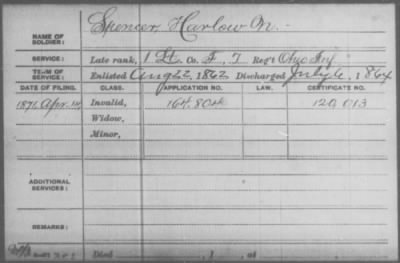 Spencer, Harlow N.
NAME OF SOLDIER:
SERVICE: Late rank, 1 Lt. Co. F, 7 Reg't Ohio Inf
TERM OF SERVICE: Enlisted Aug 22, 1862 Discharged July 6, 1864
DATE OF FILING. CLASS. APPLICATION NO. LAW. CERTIFICATE NO.
1871 Apr. 14 Invalid, 164.804 120,013
Widow,
Minor,
ADDITIONAL SERVICES:
REMARKS:
Died , 1 , at